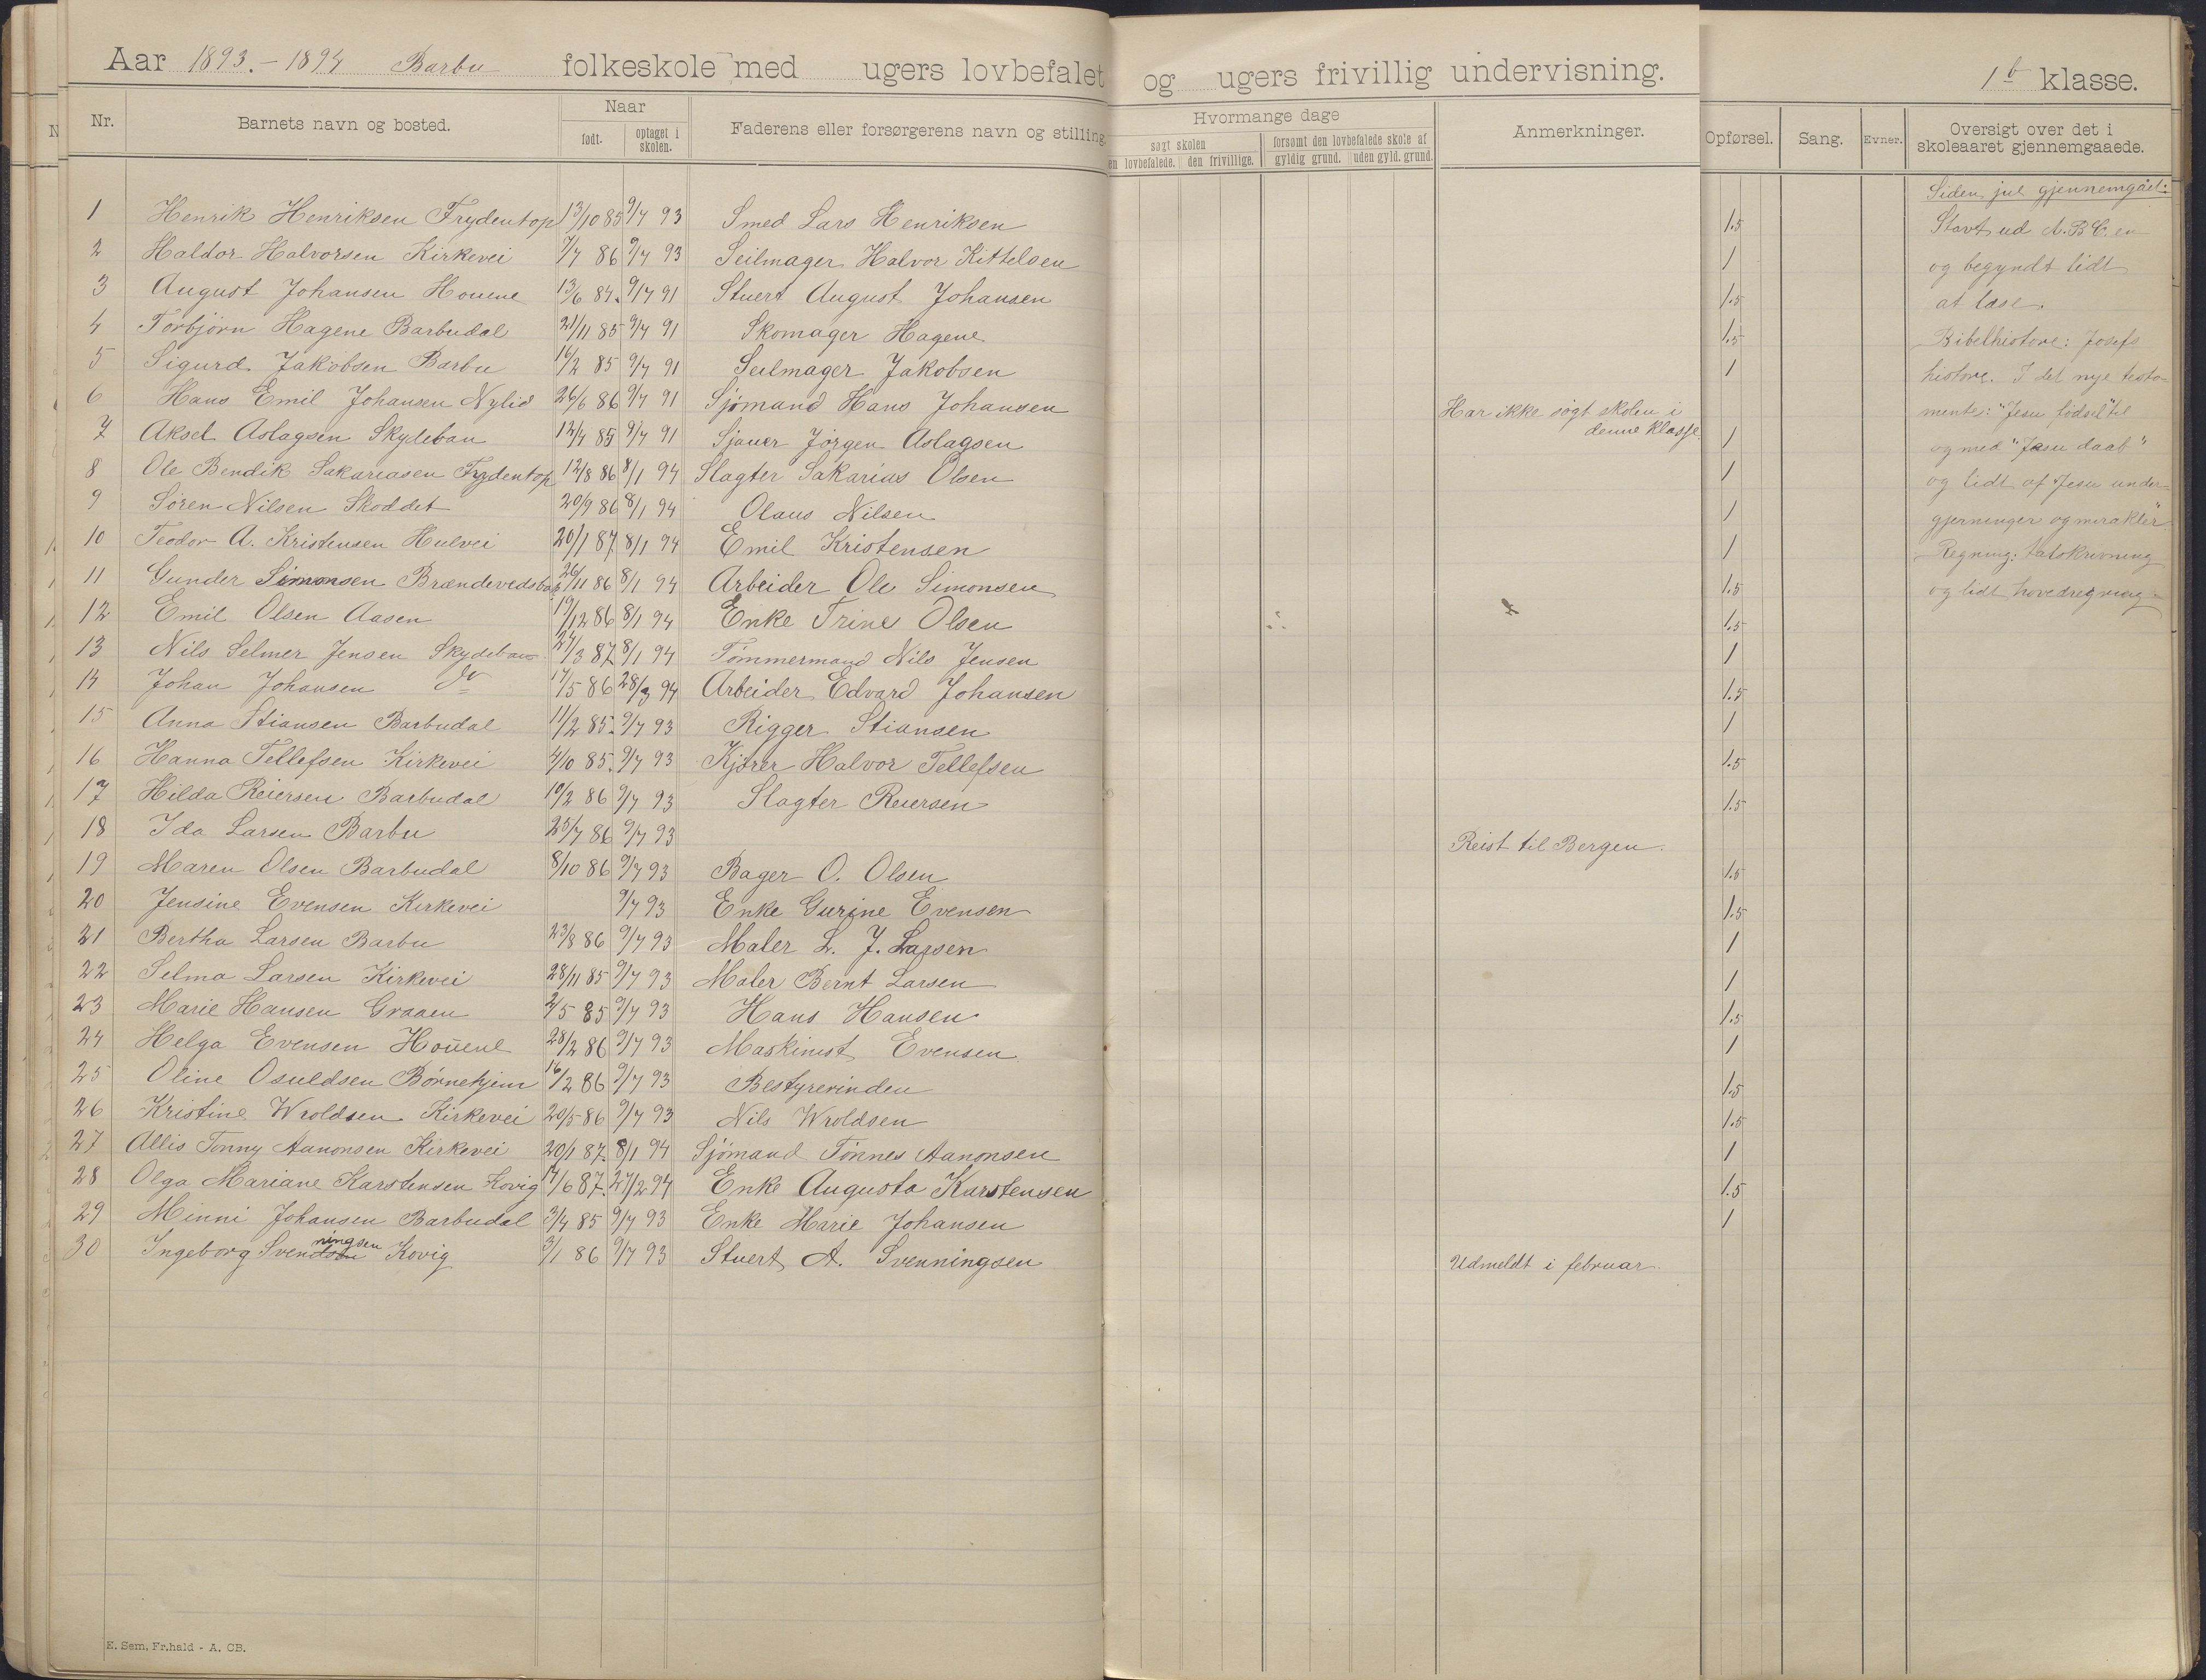 Aar 1893.-1894 Barbu folkeskole med ugers lovbefalet og ugers frivillig undervisning. 1b klasse.
Nr. Barnets navn og bosted. Naar født. optaget i skolen. Faderens eller forsørgerens navn og stilling Hvormange dage søgt skolen en lovbefalede. den frivillige. forsømt den lovbefalede skole af gyldig grund. uden gyld. grund. Anmerkninger. Opførsel. Sang. Evner. Oversigt over det i skoleaaret gjennemgaaede.
1 Henrik Henriksen Frydentop 13/10 85 9/7 93 Smed Lars Henriksen 1.5
2 Haldor Halvorsen Kirkevei 7/7 86 9/7 93 Seilmager Halvor Kittelsen 1
3 August Johansen Houene 13/6 84. 9/7 91 Stuert August Johansen 1.5
4 Torbjörn Hagene Barbudal 21/11 85 9/7 91 Skomager Hagene 1.5
5 Sigurd Jakobsen Barbu 16/2 85 9/7 91 Seilmager Jakobsen 1
6 Hans Emil Johansen Nylid 26/6 86 9/7 91 Sjömand Hans Johansen Har ikke søgt skolen i denne klasse.
7 Aksel Aslagsen Skydeban 12/7 85 9/7 91 Sjauer Jörgen Aslagsen 1
8 Ole Bendik Sakariasen Frydentop 12/8 86 8/1 94 Slagter Sakarias Olsen 1
9 Sören Nilsen Skoddet 20/9 86 8/1 94 Olaus Nilsen 1
10 Teodor A. Kristensen Hulvei 20/1 87 8/1 94 Emil Kristensen 1
11 Gunder Simonsen 26/11 86 8/1 94 Arbeider Ole Simonsen 1.5
12 Emil Olsen Aasen 19/12 86 8/1 94 Enke Trine Olsen 1.5
13 Nils Selmer Jensen Skydeban 27/3 87 8/1 94 Tömmermand Nils Jensen 1
14 Johan Johansen do 17/5 86 28/3 94 Arbeider Edvard Johansen 1.5
15 Anna Stiansen Barbudal 11/2 85. 9/7 93 Rigger Stiansen 1
16 Hanna Tellefsen Kirkevei 4/10 85. 9/7 93 Kjörer Halvor Tellefsen 1.5
17 Hilda Reiersen Barbudal 10/2 86 9/7 93 Slagter Reiersen 1.5
18 Ida Larsen Barbu 25/7 86 9/7 93 Reist til Bergen.
19 Maren Olsen Barbudal 8/10 86 9/7 93 Bager O. Olsen 1.5
20 Jensine Evensen Kirkevei 9/7 93 Enke Gurine Evensen 1.5
21 Bertha Larsen Barbu 23/8 86 9/7 93 Maler L. J. Larsen 1
22 Selma Larsen Kirkevei 28/11 85 9/7 93 Maler Bernt Larsen 1
23 Marie Hansen Graaen 2/5 85 9/7 93 Hans Hansen 1.5
24 Helga Evensen Houene 28/2 86 9/7 93 Maskinist Evensen 1
25 Oline Osuldsen Börnehjem 16/2 86 9/7 93 Bestyrerinden 1.5
26 Kristine Wroldsen Kirkevei 20/5 86 9/7 93 Nils Wroldsen 1.5
27 Allis Tonny Aanonsen Kirkevei 20/1 87. 8/1 94 Sjömand Tönnes Aanonsen 1
28 Olga Mariane Karstensen Kovig 17/6 87. 27/2 94 Enke Augusta Karstensen 1.5
29 Minni Johansen Barbudal 3/4 85 9/7 93 Enke Marie Johansen 1
30 Ingeborg Svenningsen Kovig 3/1 86 9/7 93 Stuert A. Svenningsen Udmeldt i februar.
Siden jul gjennemgået:
Stavt ud A.B.C.en
og begyndt lidt
at læse.
Bibelhistorie: Josefs
historie. I det nye testa-
mente: "Jesu fødsel" til
og med "Jesu daab"
og lidt af Jesu under-
gjerninger og mirakler"
Regning: talskrivning
og lidt hovedregning.
E. Sem, Fr.hald - A. CB.